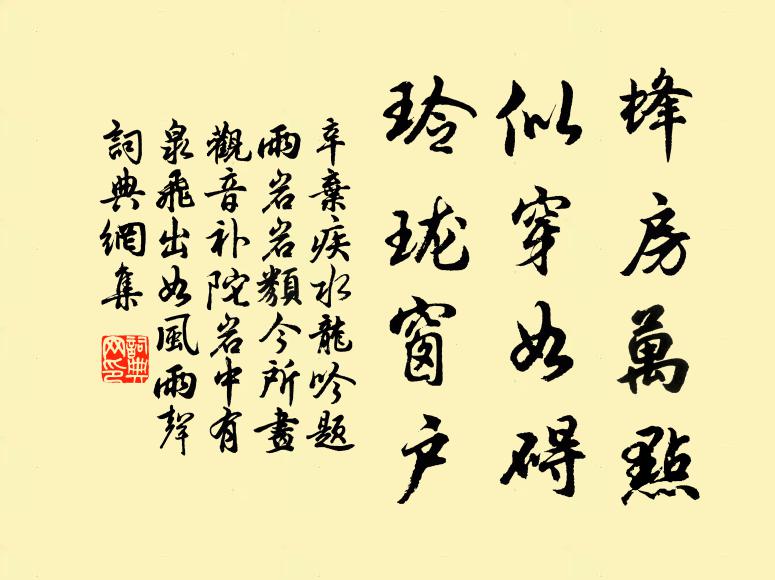 蜂房萬點
似穿如碍
玲珑窗户
辛棄疾水龍吟题
雨岩岩類今所畫
觀音补陀岩中有
泉飛出如風雨聲
詞典網集
詞典
网印